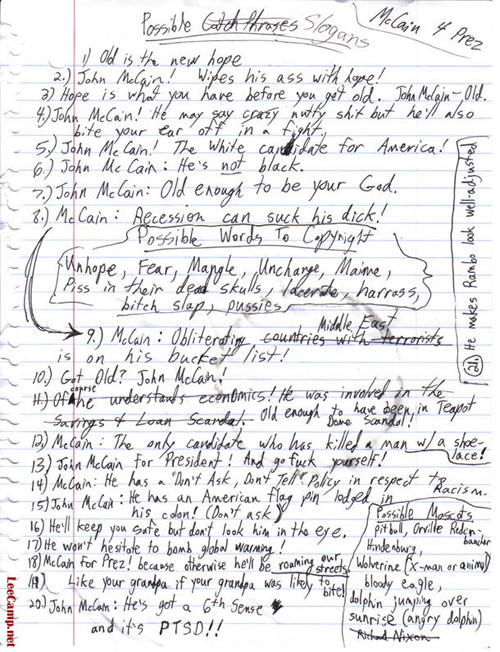 Possible Catch Phrases Slogans
McCain 4 Prez
1) Old is the new hope
2.) John McCain! Wipes his ass with hope!
3) Hope is what you have before you get old. John McCain - Old.
4.) John McCain! He may say crazy nutty shit but he'll also
bite your ear off in a fight.
5.) John McCain! The White candidate for America!
6.) John McCain: He's not black.
7.) John McCain: Old enough to be your God.
8.) McCain: Recession can suck his dick!
Possible Words To Copyright
Unhope, Fear, Mangle, Unchange, Maime,
Piss in their dead skulls, lacerate, harrass,
bitch slap, pussies
9.) McCain: Obliterating countries with terrorists Middle East
is on his bucket list!
10.) Got Old? John McCain!
11.) Of course he understands economics! He was involved in the
Savings & Loan Scandal. Old enough to have been in Teapot
Dome Scandal!
12) McCain: The only candidate who has killed a man w/ a shoe-
lace!
13) John McCain for President! And go fuck yourself!
14) McCain: He has a "Don't Ask, Don't Tell" Policy in respect to
Racism.
15) John McCain: He has an American flag pin lodged in
his colon! (Don't ask)
16) He'll keep you safe but don't look him in the eye.
17) He won't hesitate to bomb global warming!
18) McCain for Prez! because otherwise he'll be roaming our
streets!
19) Like your grandpa if your grandpa was likely to
bite!
20.) John McCain: He's got a 6th Sense
and it's PTSD!!
21.) He makes Rambo look well-adjusted
Possible Mascots
pitbull, Orville Reden-
bacher
Hindenburg,
Wolverine (X-man or animal)
bloody eagle,
dolphin jumping over
sunrise (angry dolphin)
Richard Nixon
LeeCamp.net